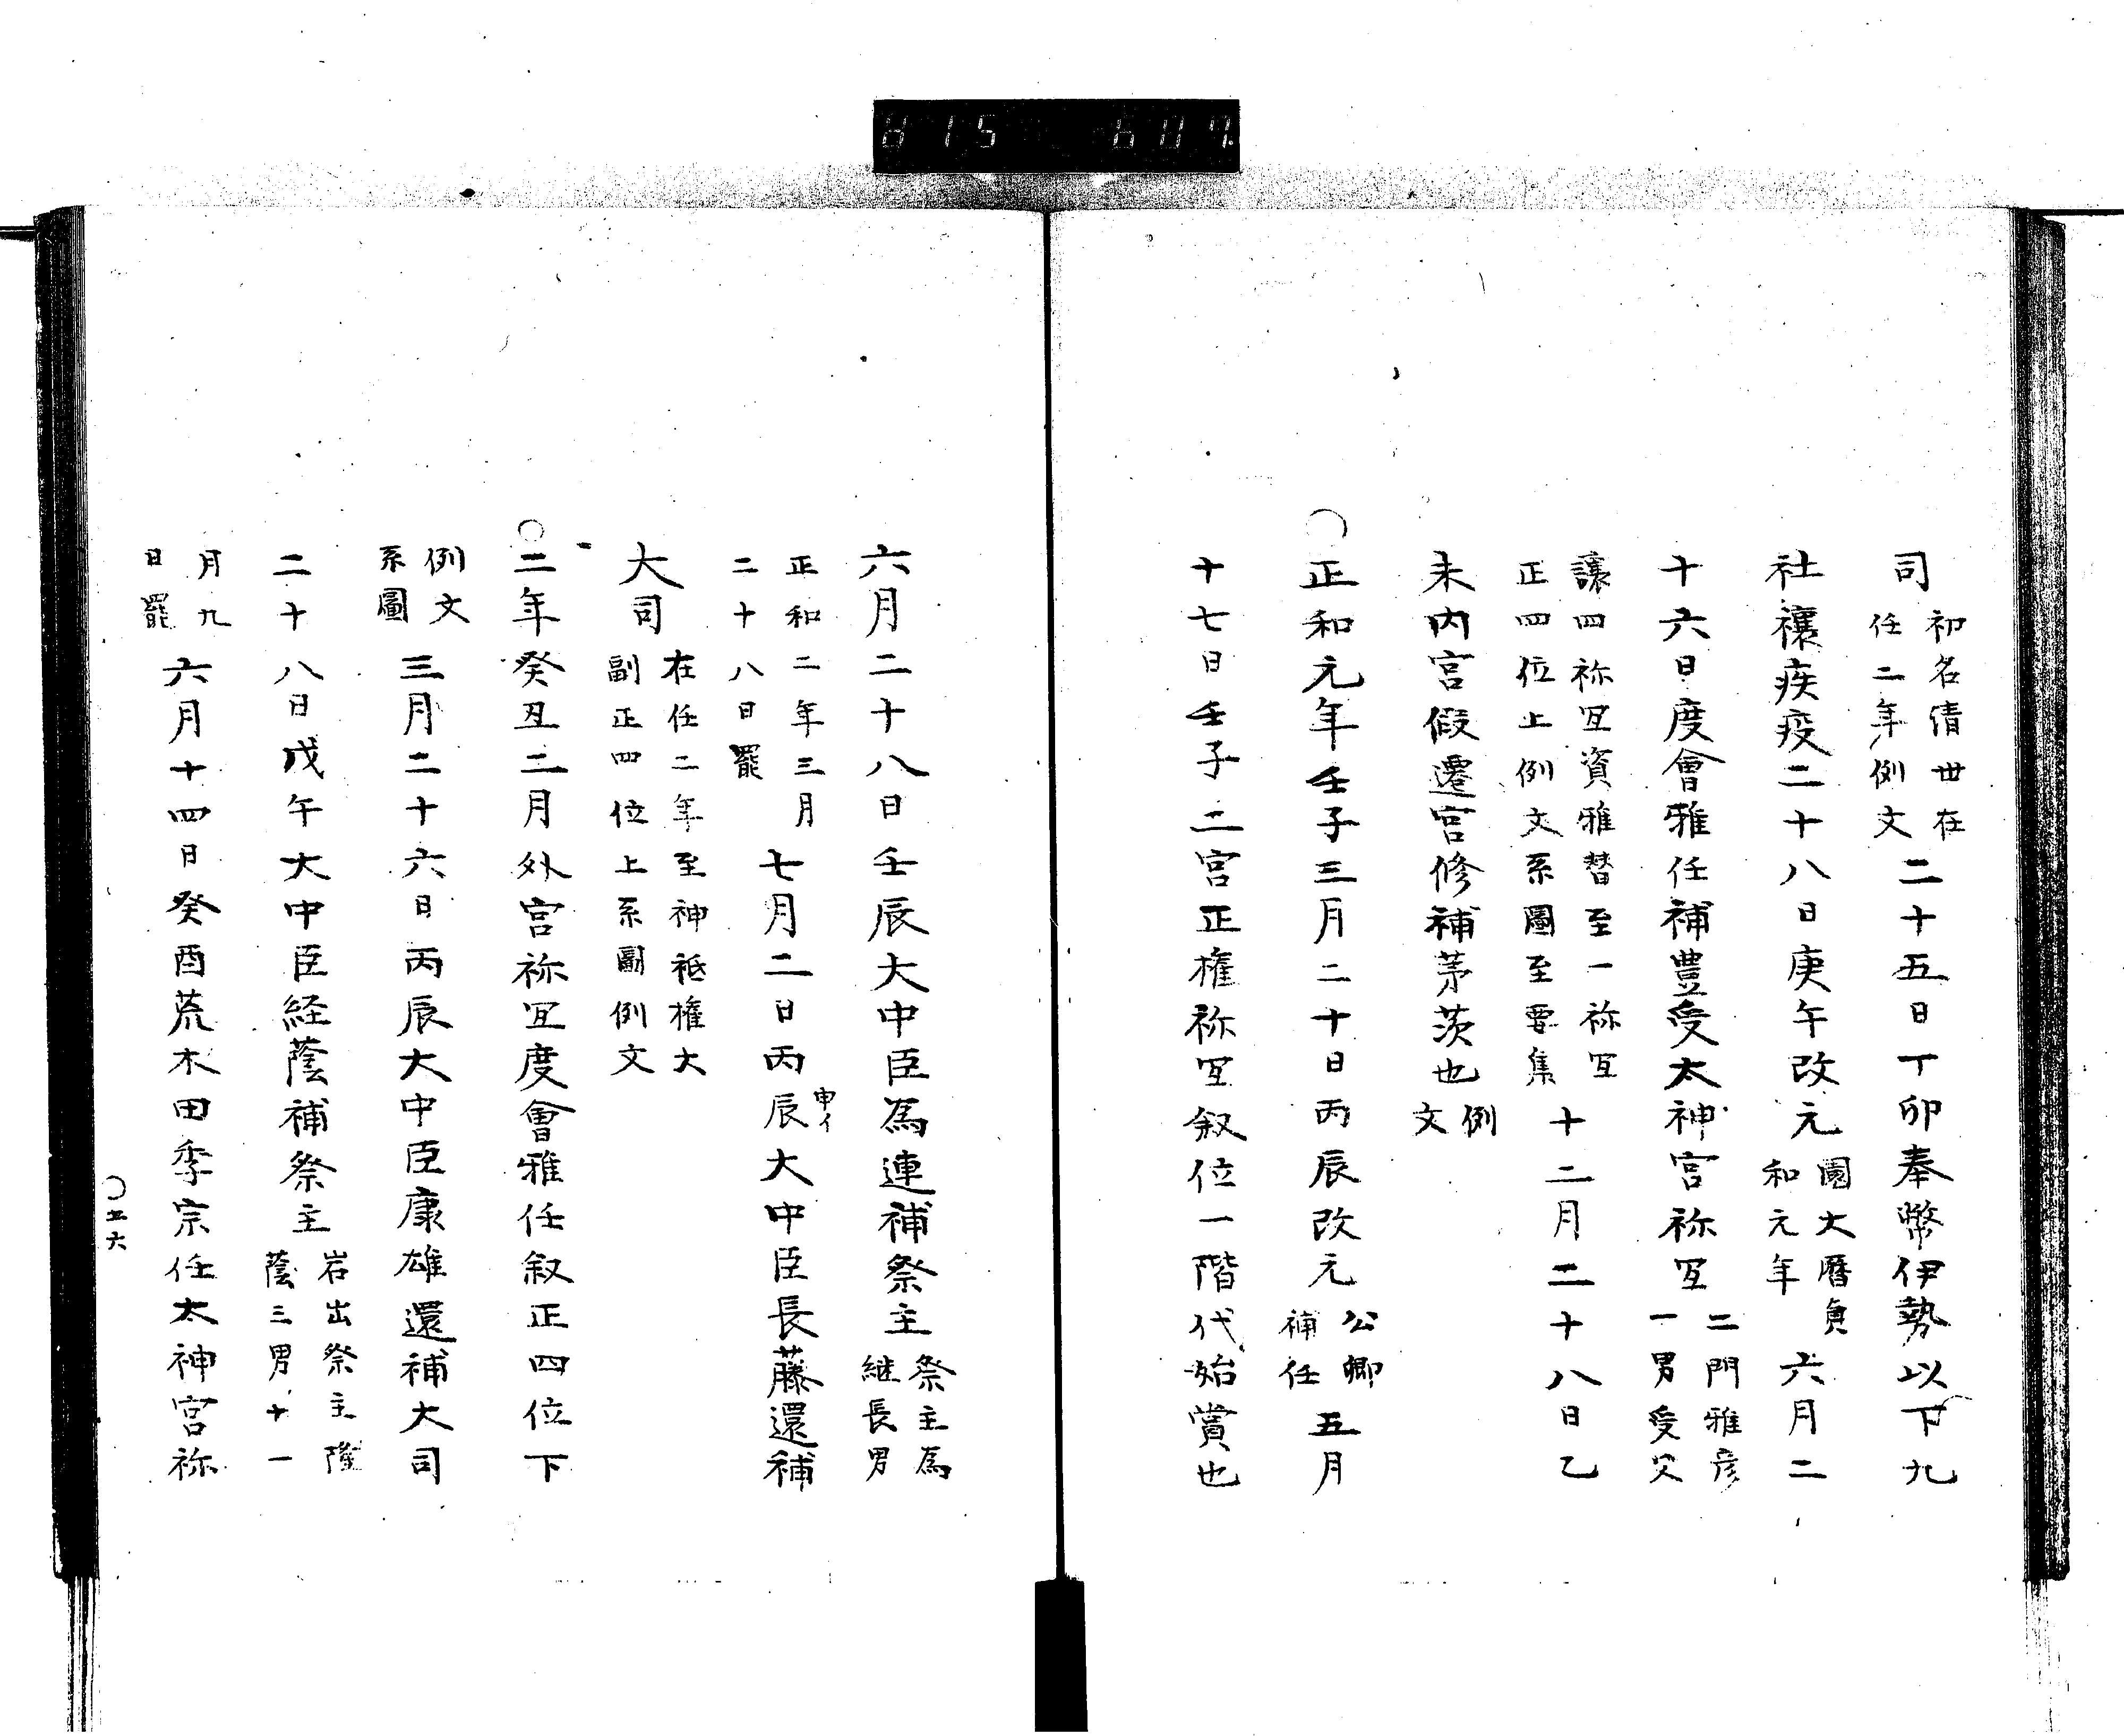 司初名清世在任二年例文二十五日丁卯奉幣伊勢以下九
社禳疾疫二十八日庚午改元園大暦貞和元年六月二
十六日度會雅任補豊受太神宮祢冝二門雅彦一男受父
譲四祢冝資雅替至一祢冝正四位上例文系圖至要集十二月二十八日乙
未内宮假遷宮修補茅茨也例文
〇正和元年壬子三月二十日丙辰改元公卿補任五月
十七日壬子二宮正権祢冝叙位一階代始賞也
六月二十八日壬辰大中臣為連補祭主祭主為継長男
正和二年三月二十八日罷七月二日丙辰申イ大中臣長藤還補
大司在任二年至神祇権大副正四位上系圖例文
〇二年癸丑二月外宮祢冝度會雅任叙正四位下
例文系圖三月二十六日丙辰大中臣康雄還補大司
二十八日戊午大中臣経蔭補祭主岩出祭主隆蔭三男十一
月九日罷六月十四日癸酉荒木田季宗任太神宮祢
〇エ六
815 607